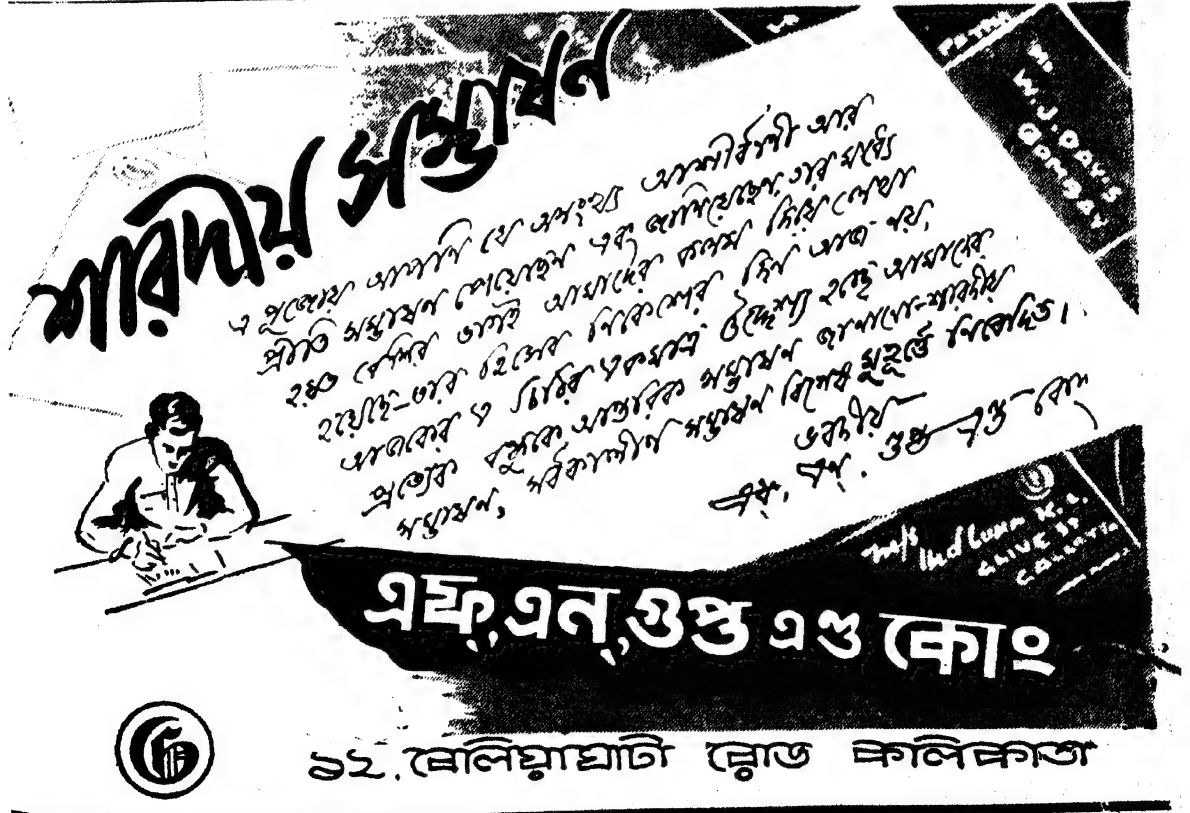 শারদীয় সম্ভাষণ
এ পূজোয় আপনি যে অসংখ্য আশীর্বাণী আর
প্রীতি সম্ভাষণ পেয়েছেন এবং জানিয়েছেন, তার মধ্যে
হয়ত বেশির ভাগই আমাদের কলম দিয়ে লেখা
হয়েছে—তার হিসেব নিকেশের দিন আজ নয়,
আজকের এ চিঠির একমাত্র উদ্দেশ্য হচ্ছে আমাদের
প্রত্যেক বন্ধুকে আন্তরিক সম্ভাষণ জানানো—শারদীয়
সম্ভাষণ, সর্বকালীন সম্ভাষণ বিশেষ মুহূর্ত্তে নিবেদিত।
ভবদীয়—
এফ্. এন্. গুপ্ত এণ্ড কোং
PATNA
W.J. DAVIS
BOMBAY
M/s
CLIVE ST
CALCUTTA
এফ্, এন্, গুপ্ত এণ্ড কোং
১২, বেলিয়াঘাটা রোড কলিকাতা